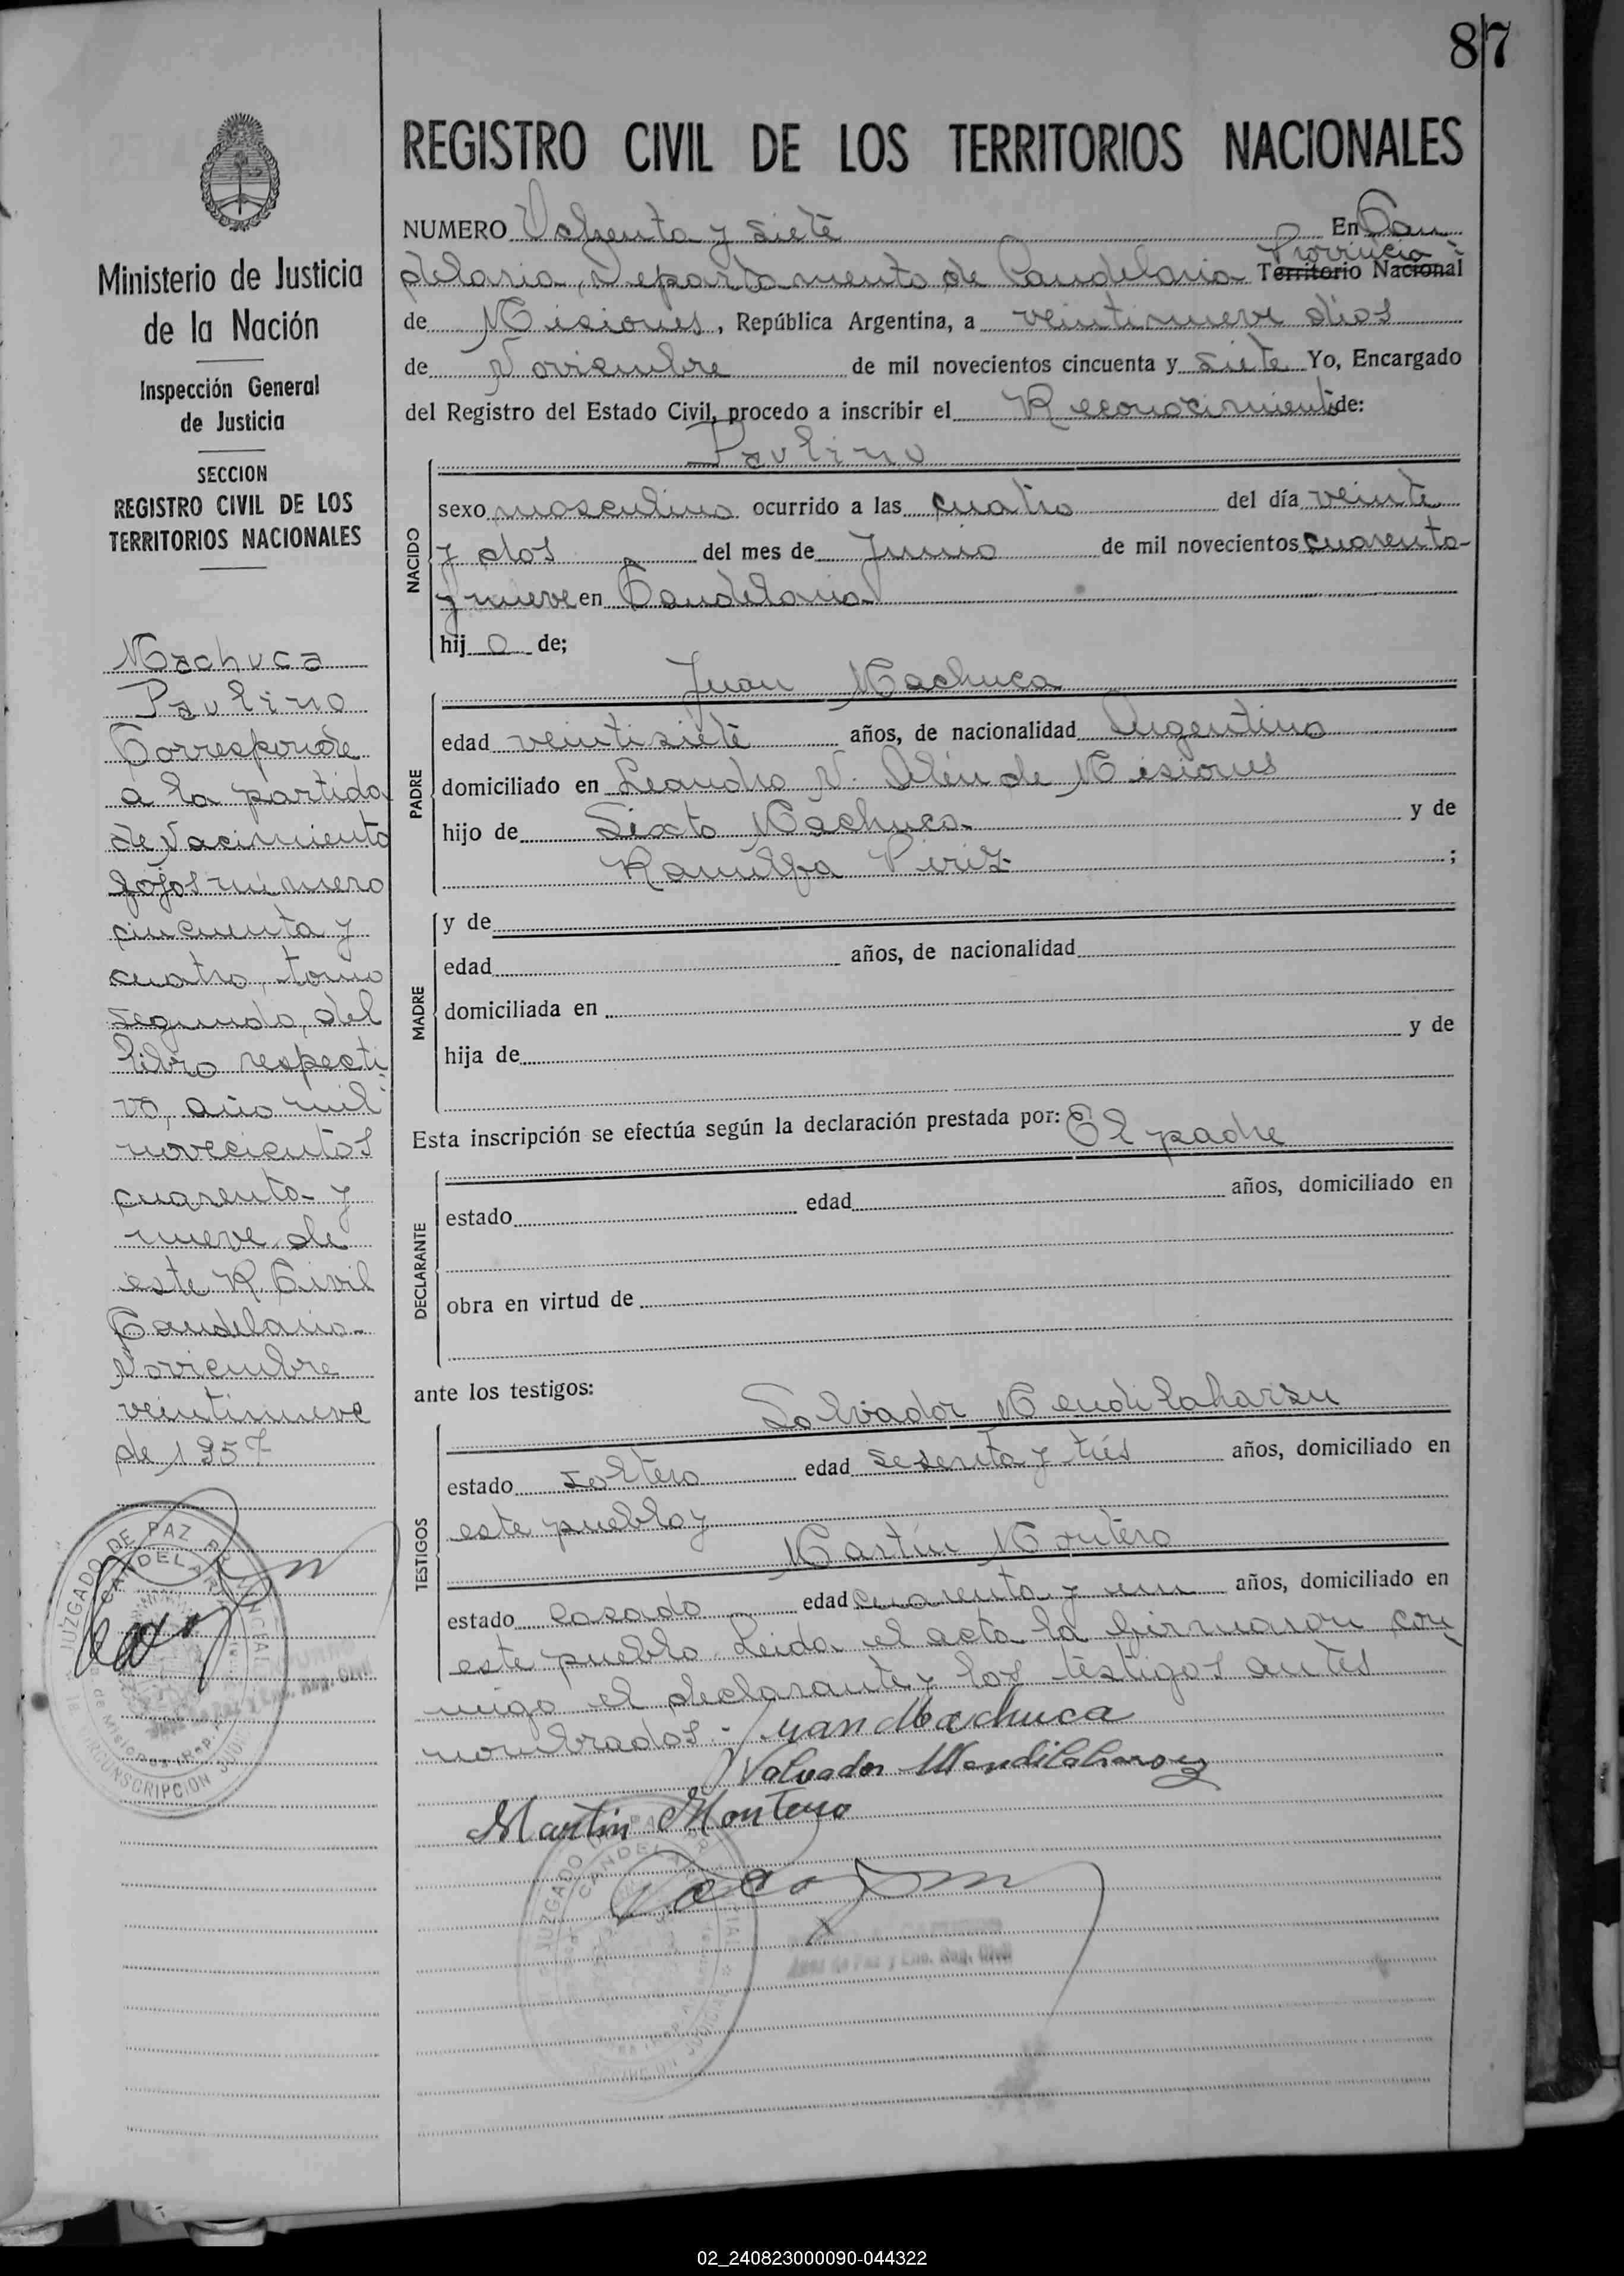 87
REGISTRO CIVIL DE LOS TERRITORIOS NACIONALES
Ministerio de Justicia
de la Nación
Inspección General
de Justicia
SECCION
REGISTRO CIVIL DE LOS
TERRITORIOS NACIONALES
Machuca
Paulino
Corresponde
a la partida
de Nacimiento
fojos número
cincuenta y
cuatro, tomo
segundo, del
libro respecti
vo, año mil
novecientos
cuarenta y
nueve de
este R. Civil
Candelaria
Noviembre
veintinueve
de 1957
JUZGADO DE PAZ PROVINCIAL
CANDELARIA
CIRCUNSCRIPCION
NUMERO Ochenta y siete En Can
Provincia
delaria, Departamento de Candelaria Territorio Nacional
de Misiones, República Argentina, a veintinueve dios
de Noviembre de mil novecientos cincuenta y siete Yo, Encargado
del Registro del Estado Civil, procedo a inscribir el Reconocimiento de:
Paulino
NACIDO
sexo masculino ocurrido a las cuatro del día veinte
y dos del mes de Junio de mil novecientos cuarenta
y nueve en Candelaria
hij o de;
Juan Machuca
PADRE
edad veintisiete años, de nacionalidad Argentino
domiciliado en Leandro N. Além de Misiones
hijo de Sixto Machuca y de
Piriz ;
MADRE
y de
edad años, de nacionalidad
domiciliada en
hija de y de
Esta inscripción se efectúa según la declaración prestada por: El padre
DECLARANTE
estado edad años, domiciliado en
obra en virtud de
ante los testigos:
Salvador Mendilaharzu
TESTIGOS
estado soltero edad sesenta y trés años, domiciliado en
este pueblo y
Martín Montero
estado casado edad cuarenta y un años, domiciliado en
este pueblo. Leida el acta la firmaron con
migo el declarante y los testigos antes
nombrados.-
Juan Machuca
Salvador Mendilaharzu
Martin Montero
JUZGADO
CANDELARIA
Juez de Paz y Enc. Reg. Civil
02_240823000090-044322